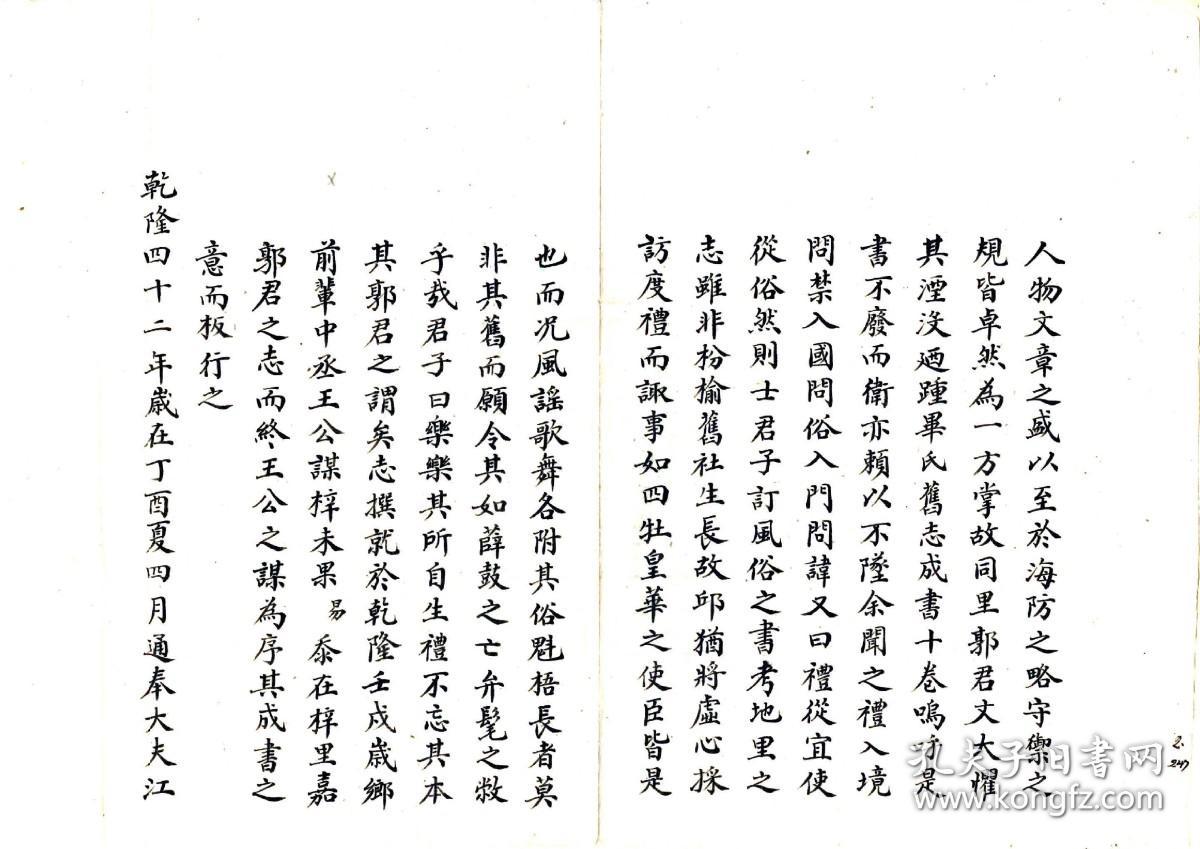 人物文章之盛以至於海防之略守禦之
規皆卓然為一方掌故同里郭君丈大懼
其湮没廼踵畢氏舊志成書十卷嗚呼是
書不廢而衛亦賴以不墜余聞之禮入境
問禁入國問俗入門問諱又曰禮從宜使
從俗然則士君子訂風俗之書考地里之
志雖非枌榆舊社生長故邱猶將虛心採
訪度禮而諏事如四牡皇華之使臣皆是
也而况風謡歌舞各附其俗魁梧長者莫
非其舊而願令其如薛鼓之亡弁髦之敝
乎哉君子曰樂樂其所自生禮不忘其本
其郭君之謂矣志撰就於乾隆壬戍歲鄉
前輩中丞王公謀梓未果 易 忝在梓里嘉
郭君之志而終王公之謀為序其成書之
意而板行之
乾隆四十二年歲在丁酉夏四月通奉大夫江
2.
247
孔夫子旧书网
www.kongfz.com